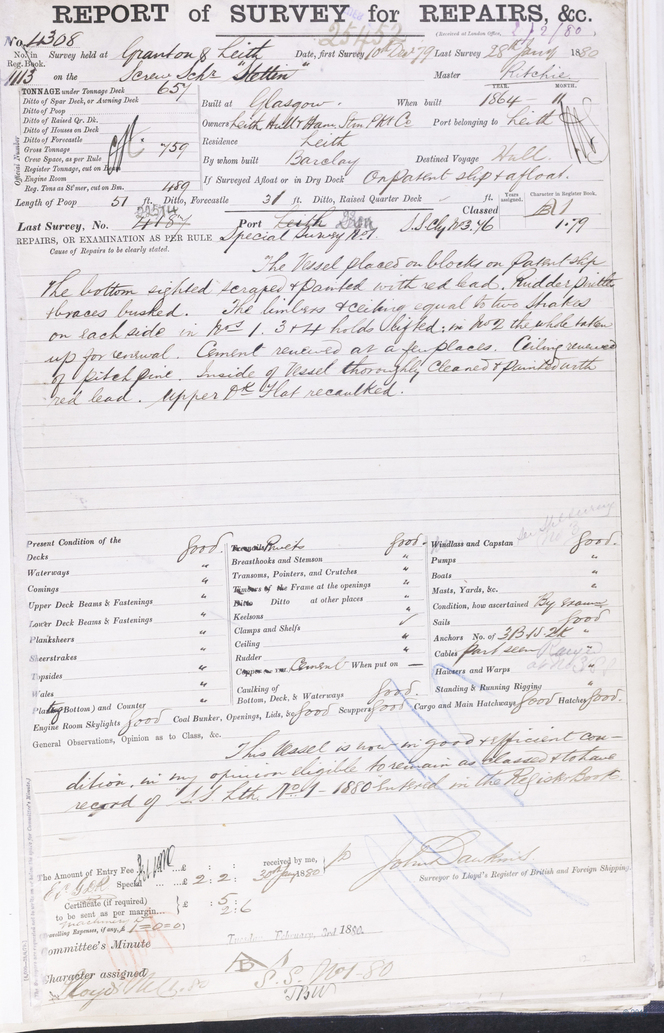 REPORT of SURVEY for REPAIRS, &c.
(Received at London Office, 2/2/80.
No. 4308
25452
No. in Reg. Book. Survey held at Granton & Leith Date, first Survey 10th Dec 79 Last Survey 28th Jany 1880
1113 on the Screw Schr "Stettin" Master Ritchie
TONNAGE under Tonnage Deck 657
Ditto of Spar Deck, or Awning Deck
Ditto of Poop
Ditto of Raised Qr. Dk.
Ditto of Houses on Deck
Ditto of Forecastle
Gross Tonnage 759
Crew Space, as per Rule
Register Tonnage, cut on
Engine Room
Reg. Tons as St'mer, cut on Bm. 489
Official Number
YEAR. MONTH.
Built at Glasgow. When built 1864 11
Owners Leith Hull & Ham. Stm. Pkt Co Port belonging to Leith
Residence Leith
By whom built Barclay Destined Voyage Hull.
If Surveyed Afloat or in Dry Dock On patent slip & afloat.
Length of Poop 51 ft. Ditto, Forecastle 31 ft. Ditto, Raised Quarter Deck - ft.
Years assigned. Character in Register Book.
Classed A1
1.79
Last Survey, No. 4187 Port Leith S.S. Cly No 3. 76
REPAIRS, OR EXAMINATION AS PER RULE Special Survey No 1
Cause of Repairs to be clearly stated.
The Vessel placed on blocks on patent slip
The bottom sighted scraped & painted with red lead. Rudder pintles
& braces bushed. The limbers & ceiling equal to two strakes
on each side in Nos 1. 3 & 4 holds lifted: in No 2 the whole taken
up for renewal. Cement renewed at a few places. Ceiling renewed
of pitch pine. Inside of Vessel thoroughly cleaned & painted with
red lead. Upper Dk flat recaulked.
Present Condition of the
Decks good.
Waterways "
Comings "
Upper Deck Beams & Fastenings "
Lower Deck Beams & Fastenings "
Planksheers "
Sheerstrakes "
Topsides "
Wales "
Plating (Bottom) and Counter "
Engine Room Skylights good Coal Bunker, Openings, Lids, &c. good Scuppers good Cargo and Main Hatchways good Hatches good.
Treenails Rivets good.
Breasthooks and Stemson "
Transoms, Pointers, and Crutches "
Timbers of the Frame at the openings "
Ditto Ditto at other places "
Keelsons "
Clamps and Shelfs
Ceiling "
Rudder "
Cement When put on —
Caulking of Bottom, Deck, & Waterways good.
Windlass and Capstan good.
Pumps "
Boats "
Masts, Yards, &c. "
Condition, how ascertained By exam
Sails good
Anchors No. of 3B 1S 2K "
Cables part seen
Hawsers and Warps "
Standing & Running Rigging "
General Observations, Opinion as to Class, &c.
This Vessel is now in good & efficient con-
dition, in my opinion eligible to remain as classed & to have
record of S.S. Lth. No 1 - 1880 Entered in the Register Book.
The Amount of Entry Fee £ : : received by me,
Special £ 2 : 2 : 30th Jany 1880
Certificate (if required) £ : 5 :
to be sent as per margin 2 : 6
(Travelling Expenses, if any, £ 1=0=0)
John Dawkins
Surveyor to Lloyd's Register of British and Foreign Shipping.
Committee's Minute Tuesday February 3rd 1880.
Character assigned A1
S.S. No 1-80
Lloyds